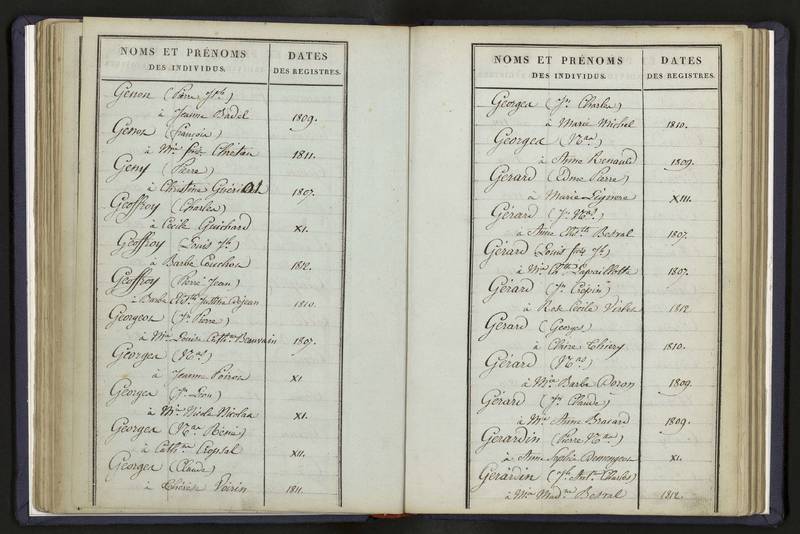 NOMS ET PRÉNOMS DATES
DES INDIVIDUS. DES REGISTRES.
Genon (Pierre Jph)
à Jeanne Badel 1809.
Genon (françois)
à Mie frse Chretien 1811.
Geny (Pierre)
à Christine Guériot 1807.
Geoffroy (Charles)
à Cecile Guichard XI.
Geoffroy (Louis Jh)
à Barbe Couchot 1812.
Geoffroy (Pierre Jean)
à Barbe Elis.th Juttine Dejean 1810.
Georgeon (Jn Pierre)
à Mie Louise Cath.ne Beauvain 1807.
Georges (Nas)
à Jeanne Poirot XI
Georges (Jn Léon)
à Mie Nicole Nicolas XI.
Georges (Nas Rémi)
à Cath.ne Crepsal XII.
Georges (Claude)
à Thérèse Voirin 1811.
NOMS ET PRÉNOMS DATES
DES INDIVIDUS. DES REGISTRES.
Georges (Jn Charles)
à Marie Michel 1810.
Georges (Nas)
à Anne Renauld 1809.
Gerard (Edme Pierre)
à Marie XIII.
Gérard (Jn Nas)
à Anne Elis.th Bestral 1807.
Gérard (Louis frs Jh)
à Mie Cath. Lapaillotte 1807.
Gérard (Jn Crépin)
à Rose Cécile 1812
Gérard (Georges)
à Claire Thiery 1810.
Gérard (Nas)
à Mie Barbe Doron 1809.
Gérard (Jn Claude)
à Mie Anne Bracard 1809.
Gerardin (Pierre Nas)
à Anne Sophie XI.
Gerardin (Jh Ant. Charles)
à Mie Mad.ne Bestral 1812.